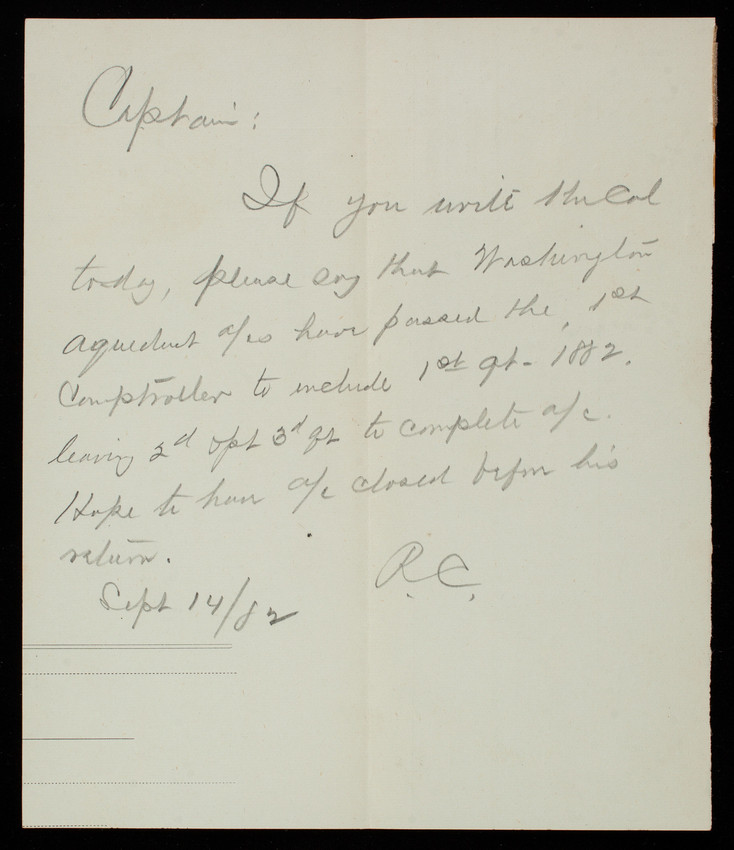 Captain:
If you write the Col
today, please say that Washington
aqueduct a/cs have passed the 1st
Comptroller to include 1st qt - 1882.
leaving 2d & pt 3d qt to complete a/c.
Hope to have a/c closed before his
return.
R.C.
Sept 14/82